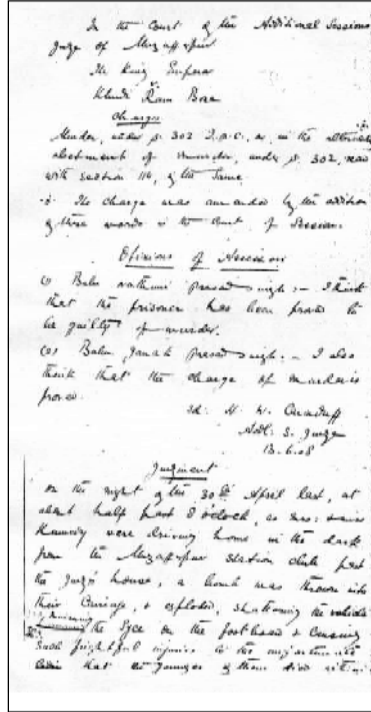 In the Court of the Additional Sessions
Judge of Muzaffpur
The King Emperor
v
Khudi Ram Bose
Charges
Murder, under s. 302 I.P.C., or in the alternative
abetment of murder, under s. 302, read
with section 114, of the same.
The charge was amended by the addition
of these words in the Court of Session.
Opinions of Assessors
(1) Babu Nathuni Prasad Singh :- I think
that the prisoner has been proved to
be guilty of murder.
(2) Babu Janak Prasad Singh :- I also
think that the charge of murder is
proved.
Sd: H. W. Carnduff
Addl: S. Judge
13.6.08
Judgment
On the night of the 30th April last, at
about half past 8 o'clock, as
Kennedy were driving home in the dark
from the Muzaffarpur Station Club past
the Judge's house, a bomb was thrown into
their Carriage, & exploded, shattering the vehicle
the Syce on the footboard & causing
such frightful injuries to the
that the younger of them died within